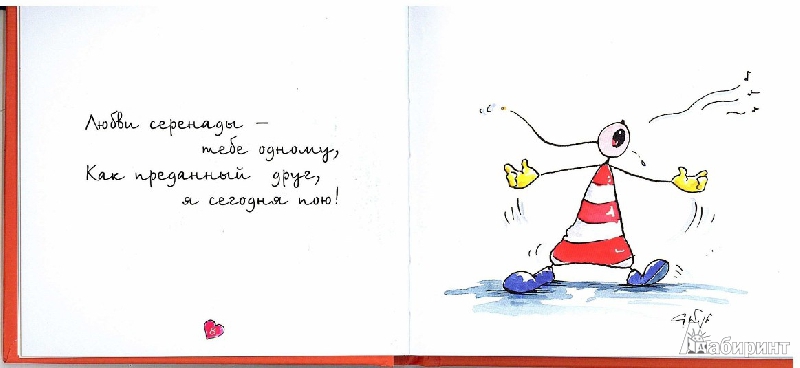 Любви серенады –
тебе одному,
Как преданный друг,
я сегодня пою!
Лабиринт